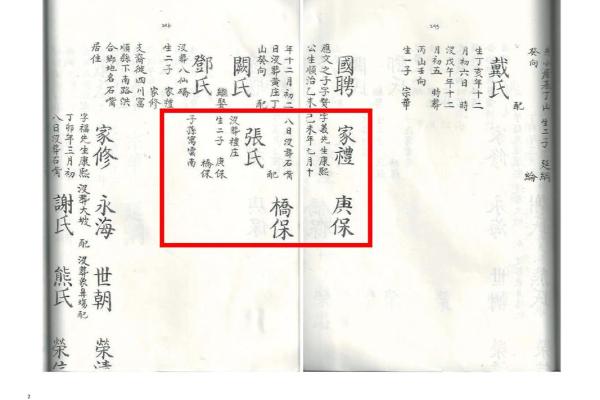 245
戴氏
配
癸向
生丁亥年十二
月初六日 時
沒戊午年十二
月初五 時葬
丙山壬向
生一子 宗華
國聘
家禮
庚保
應文之子字賢
公生順治乙未
字義先生康熙
己未年七月十
年十二月初二
日沒葬黃庄丁
山癸向 配
八日沒葬石嘴
橋保
闕氏
繼娶
張氏
配
沒葬禮庄
生二子 庚保
橋保
子孫寓雲南
鄧氏
沒葬八仙礄
生二子 家禮
家修
支裔徙四川富
順縣下南路洪
合鄉地名石嘴
居住
家修
永海
世朝
榮清
字福先生康熙
丁卯年三月初
八日沒葬石嘴
沒葬大坡 配
謝氏
熊氏
榮信
2